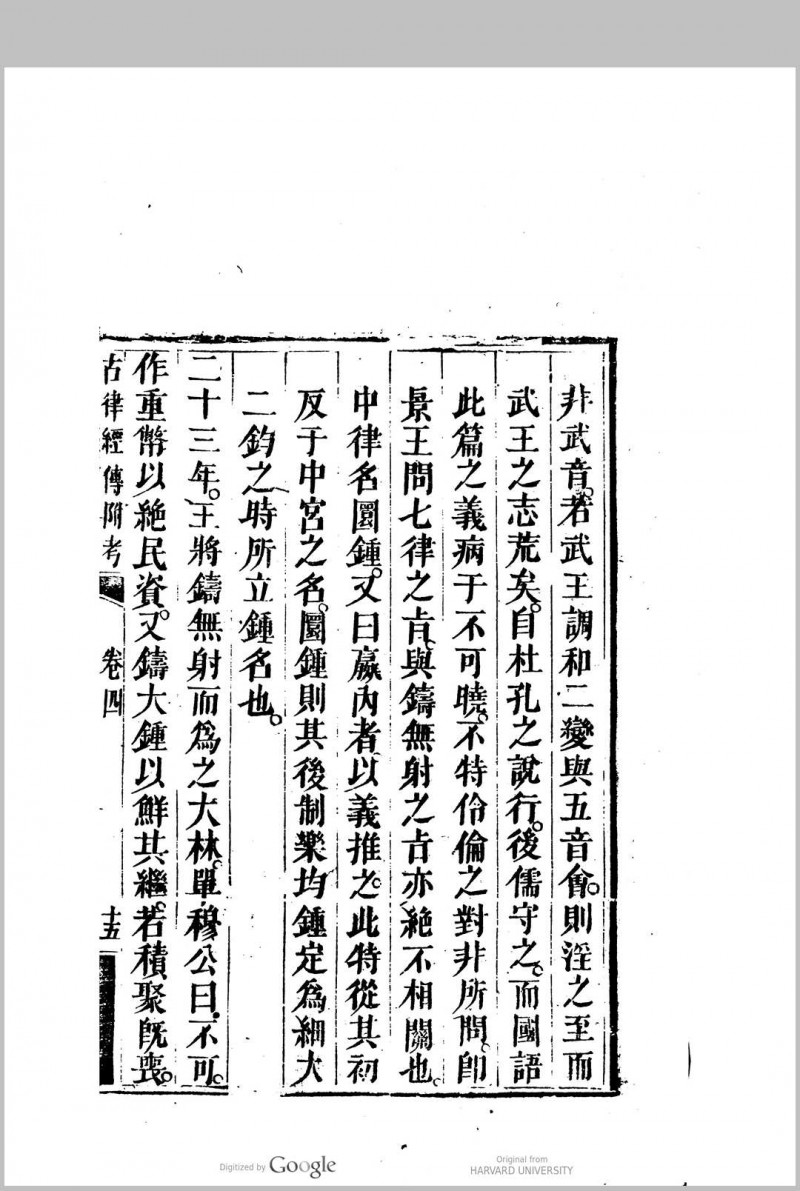 非武音。若武王調和二變與五音會。則淫之至而
武王之志荒矣。自杜孔之說行。後儒守之。而國語
此篇之義病于不可曉。不特伶倫之對非所問。卽
景王問七律之㫖。與鑄無射之㫖亦絶不相關也。
中律名圜鍾。又曰嬴內者。以義推之。此特從其初
反于中宮之名。圜鍾則其後制樂均鍾定爲細大
二鈞之時所立鍾名也。
二十三年。王將鑄無射而爲之大林。單穆公曰。不可。
作重幣以絶民資。又鑄大鍾以鮮其繼。若積聚旣喪。
古律經傳附考 卷四 十五
Digitized by Google
Original from
HARVARD UNIVERSITY